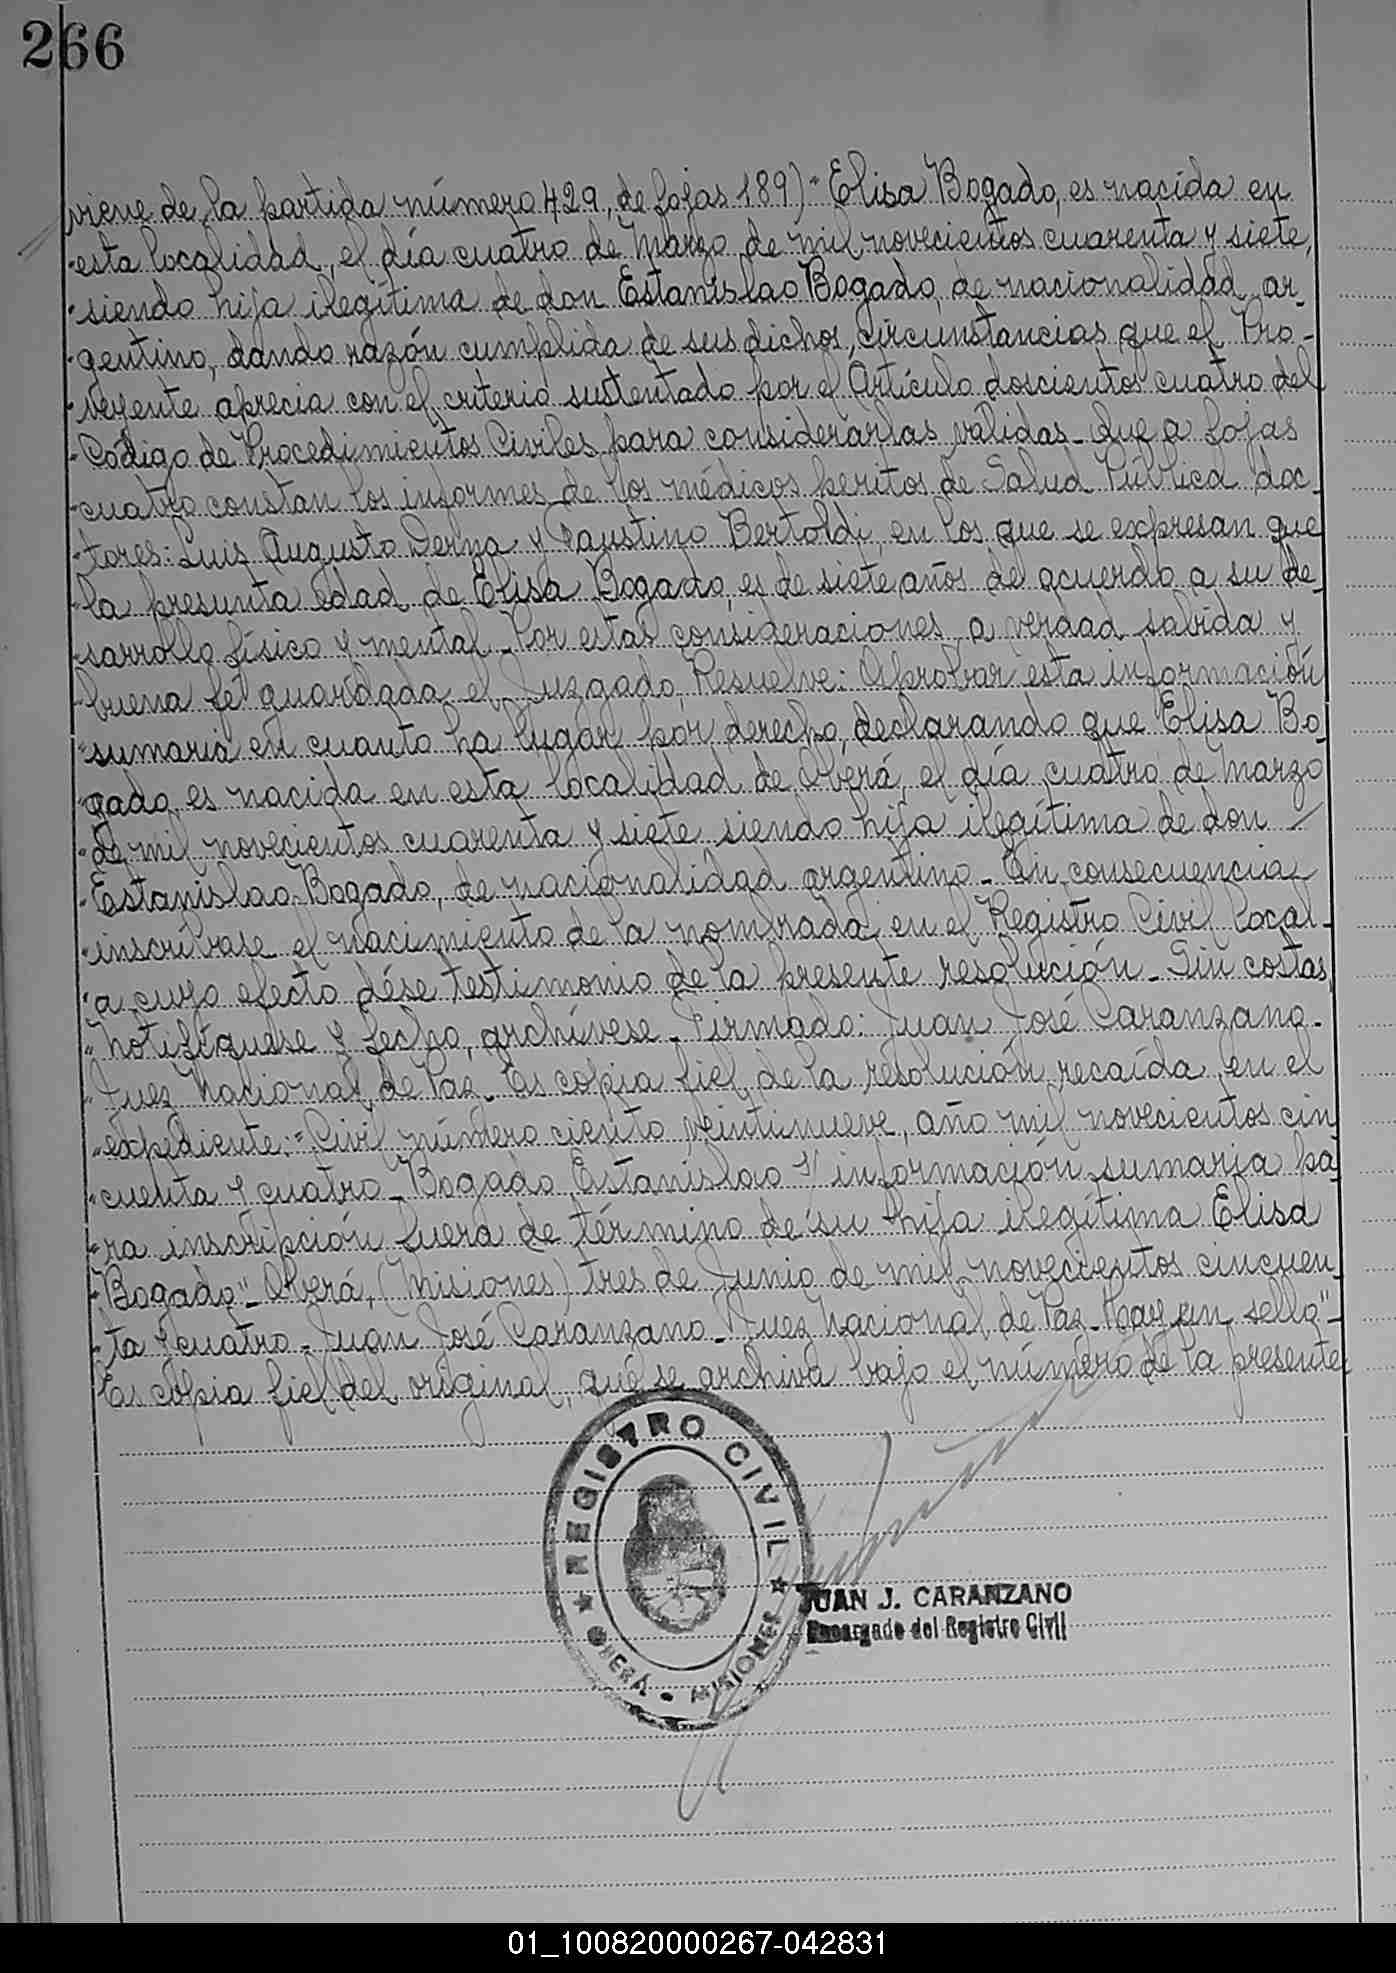 266
viene de la partida número 429, de fojas 189) "Elisa Bogado, es nacida en
"esta localidad, el día cuatro de Marzo de mil novecientos cuarenta y siete,
"siendo hija ilegítima de don Estanislao Bogado, de nacionalidad ar-
"gentino, dando razón cumplida de sus dichos, circunstancias que el Pro-
"veyente aprecia con el criterio sustentado por el Artículo doscientos cuatro del
"Código de Procedimientos Civiles para considerarlas válidas_ Que a fojas
"cuatro constan los informes de los médicos peritos de Salud Pública doc-
"tores: Luis Augusto Derna y Faustino Bertoldi, en los que se expresan que
"la presunta edad de Elisa Bogado, es de siete años de acuerdo a su de-
"sarrollo físico y mental_ Por estas consideraciones, a verdad sabida y
"buena fé guardada el Juzgado, Resuelve: Aprobar esta información
"sumaria en cuanto ha lugar por derecho, declarando que Elisa Bo-
"gado, es nacida en esta localidad de Oberá, el día cuatro de Marzo
"de mil novecientos cuarenta y siete siendo hija ilegítima de don
"Estanislao Bogado, de nacionalidad argentino_ En consecuencia
"inscríbase el nacimiento de la nombrada en el Registro Civil local-
"a cuyo efecto dése testimonio de la presente resolución_ Sin costas,
"Notifíquese y fecho, archívese_ Firmado: Juan José Caranzano-
"Juez Nacional de Paz_ Es copia fiel de la resolución recaída en el
"expediente:" Civil número ciento veintinueve, año mil novecientos cin
"cuenta y cuatro_ Bogado Estanislao s/ información sumaria pa
"ra inscripción fuera de término de su hija ilegítima Elisa
"Bogado"_ Oberá, (Misiones) tres de Junio de mil novecientos cincuen-
"ta y cuatro_ Juan José Caranzano_ Juez Nacional de Paz_ Hay un sello"_
Es copia fiel del original, que se archiva bajo el número de la presente
REGISTRO CIVIL
OBERÁ • MISIONES
JUAN J. CARANZANO
Encargado del Registro Civil
01_100820000267-042831